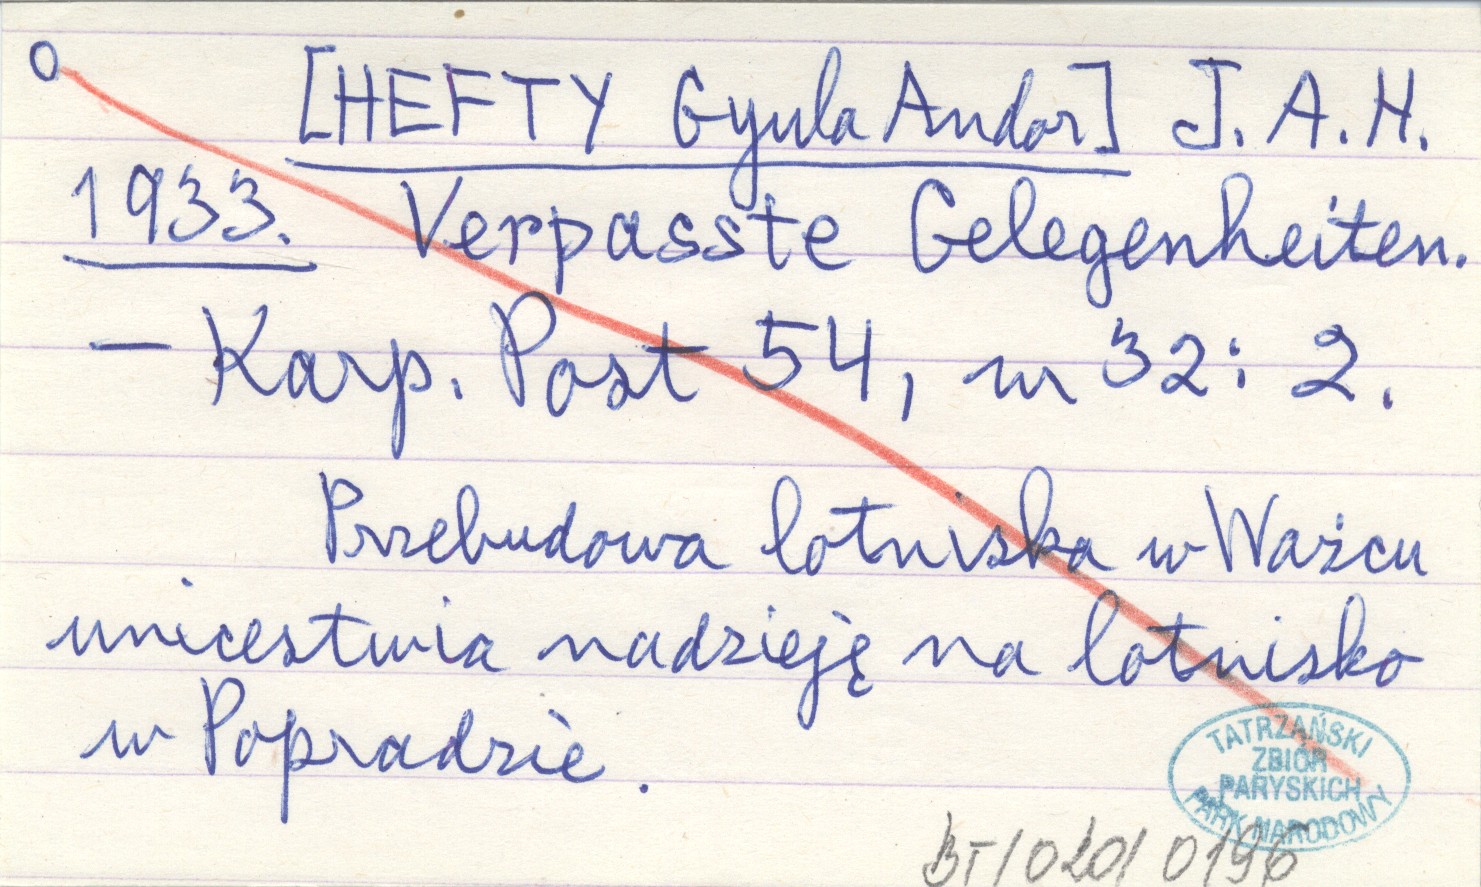 O [HEFTY Gyula Andor] J. A. H.
1933. Verpasste Gelegenheiten.
— Karp. Post 54, nr 32: 2.
Przebudowa lotniska w Ważcu
unicestwia nadzieję na lotnisko
w Popradzie.
TATRZAŃSKI
ZBIÓR
PARYSKICH
PARK NARODOWY
BT/020/0196